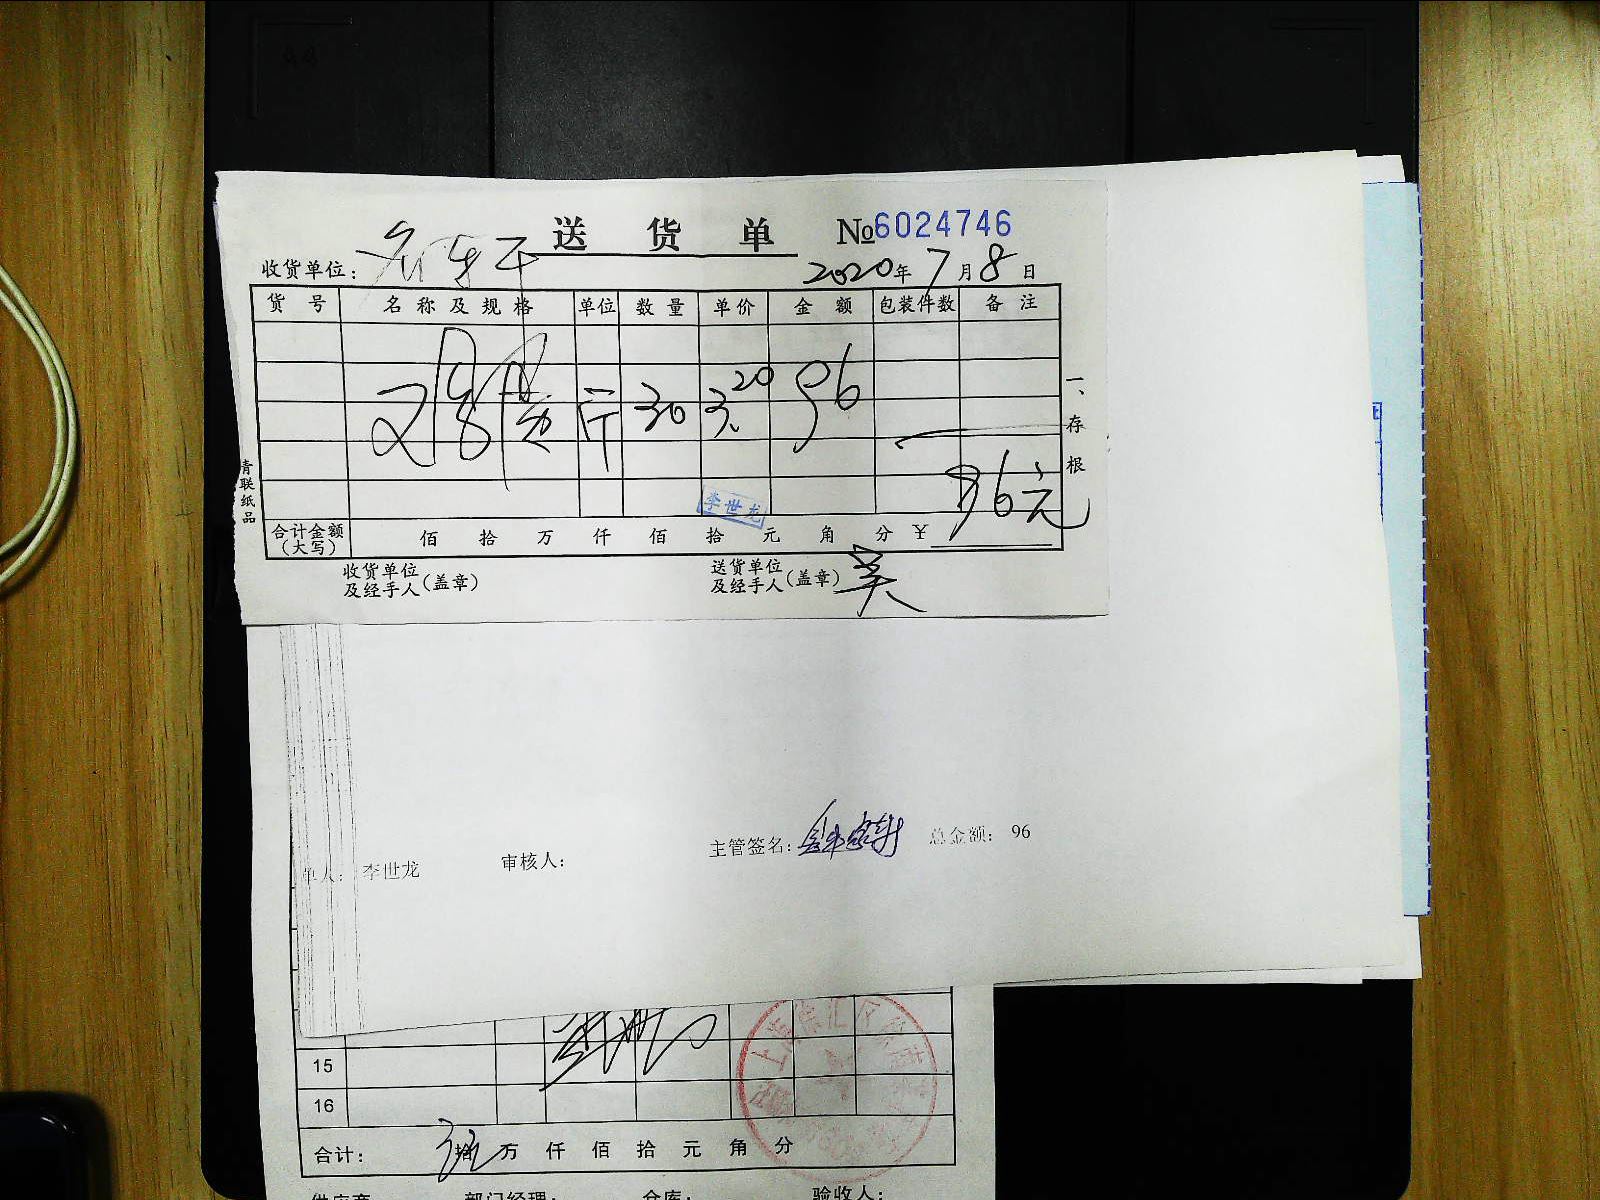 送 货 单 №6024746
收货单位: 2020年7月8日
货 号 名称及规格 单位 数量 单价 金 额 包装件数 备 注
斤 30 3.20 96
一、存根
96元
李世龙
青联纸品
合计金额(大写) 佰 拾 万 仟 佰 拾 元 角 分 ¥
收货单位及经手人(盖章) 送货单位及经手人(盖章)
单人: 李世龙 审核人: 主管签名: 总金额: 96
15
16
合计: 拾 万 仟 佰 拾 元 角 分
供应商 部门经理: 仓库: 验收人: